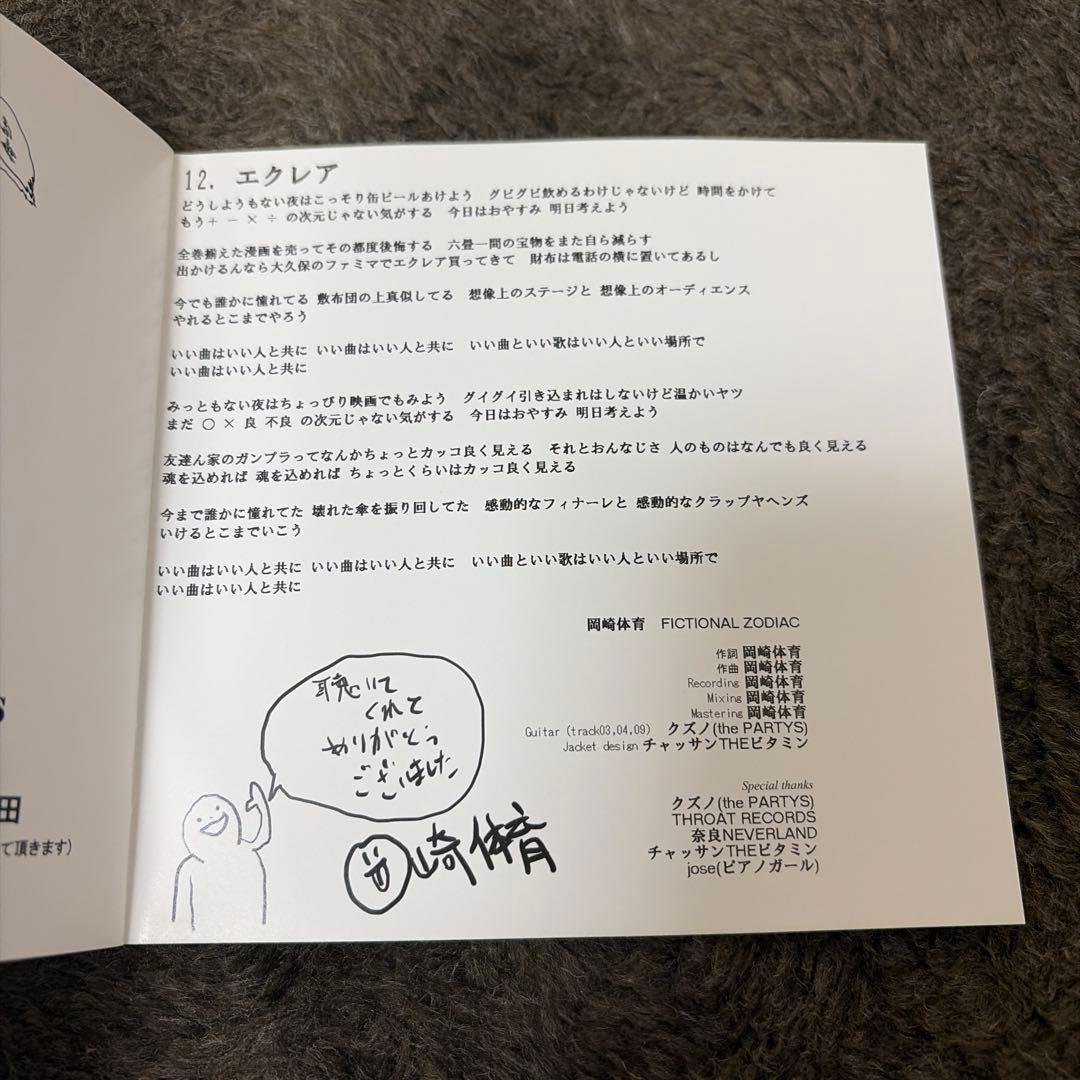 12. エクレア
どうしようもない夜はこっそり缶ビールあけよう　グビグビ飲めるわけじゃないけど 時間をかけて
もう＋ － × ÷ の次元じゃない気がする　今日はおやすみ 明日考えよう
全巻揃えた漫画を売ってその都度後悔する　六畳一間の宝物をまた自ら減らす
出かけるんなら大久保のファミマでエクレア買ってきて　財布は電話の横に置いてあるし
今でも誰かに憧れてる 敷布団の上真似してる　想像上のステージと 想像上のオーディエンス
やれるとこまでやろう
いい曲はいい人と共に いい曲はいい人と共に　いい曲といい歌はいい人といい場所で
いい曲はいい人と共に
みっともない夜はちょっぴり映画でもみよう　グイグイ引き込まれはしないけど温かいヤツ
まだ ○ × 良 不良 の次元じゃない気がする　今日はおやすみ 明日考えよう
友達ん家のガンプラってなんかちょっとカッコ良く見える　それとおんなじさ 人のものはなんでも良く見える
魂を込めれば 魂を込めれば ちょっとくらいはカッコ良く見える
今まで誰かに憧れてた 壊れた傘を振り回してた　感動的なフィナーレと 感動的なクラップヤヘンズ
いけるとこまでいこう
いい曲はいい人と共に いい曲はいい人と共に　いい曲といい歌はいい人といい場所で
いい曲はいい人と共に
岡崎体育　FICTIONAL ZODIAC
作詞 岡崎体育
作曲 岡崎体育
Recording 岡崎体育
Mixing 岡崎体育
Mastering 岡崎体育
Guitar (track03,04,09)　クズノ(the PARTYS)
Jacket design チャッサンTHEビタミン
Special thanks
クズノ(the PARTYS)
THROAT RECORDS
奈良NEVERLAND
チャッサンTHEビタミン
jose(ピアノガール)
聴いて
くれて
ありがとう
ございました
岡崎体育
S
田
て頂きます)